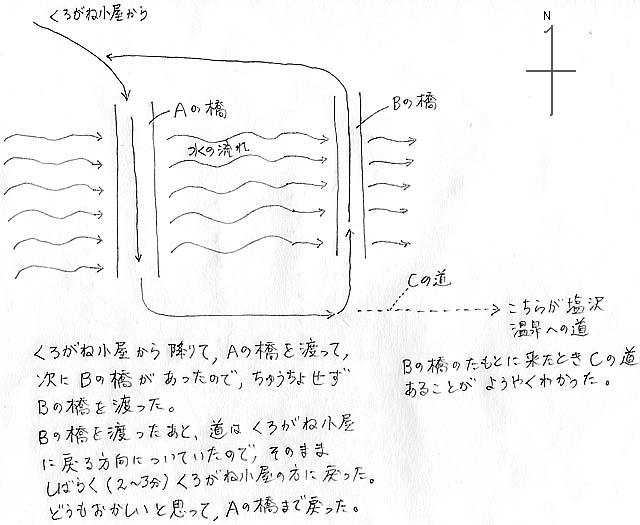 くろがね小屋から
N
Aの橋
Bの橋
水の流れ
Cの道
こちらが塩沢
温泉への道
くろがね小屋から降りて、Aの橋を渡って、
次にBの橋があったので、ちゅうちょせず
Bの橋を渡った。
Bの橋を渡ったあと、道はくろがね小屋
に戻る方向についていたので、そのまま
しばらく(2~3分)くろがね小屋の方に戻った。
どうもおかしいと思って、Aの橋まで戻った。
Bの橋のたもとに来たときCの道
あることがようやくわかった。